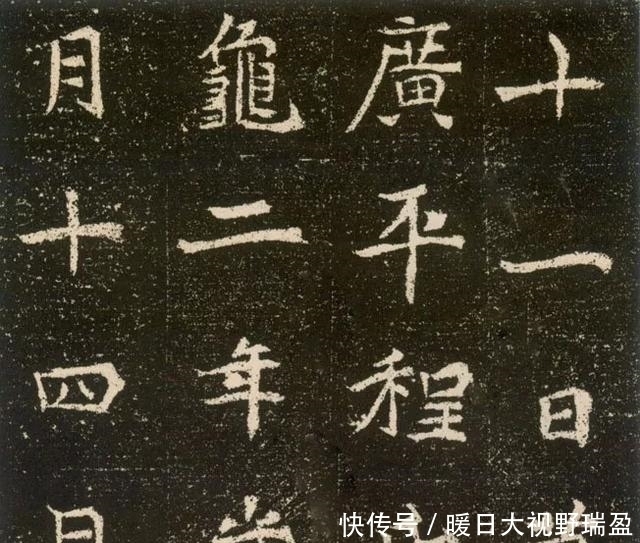 十一日
廣平程
龜二年
月十四日
快传号/暖日大视野瑞盈